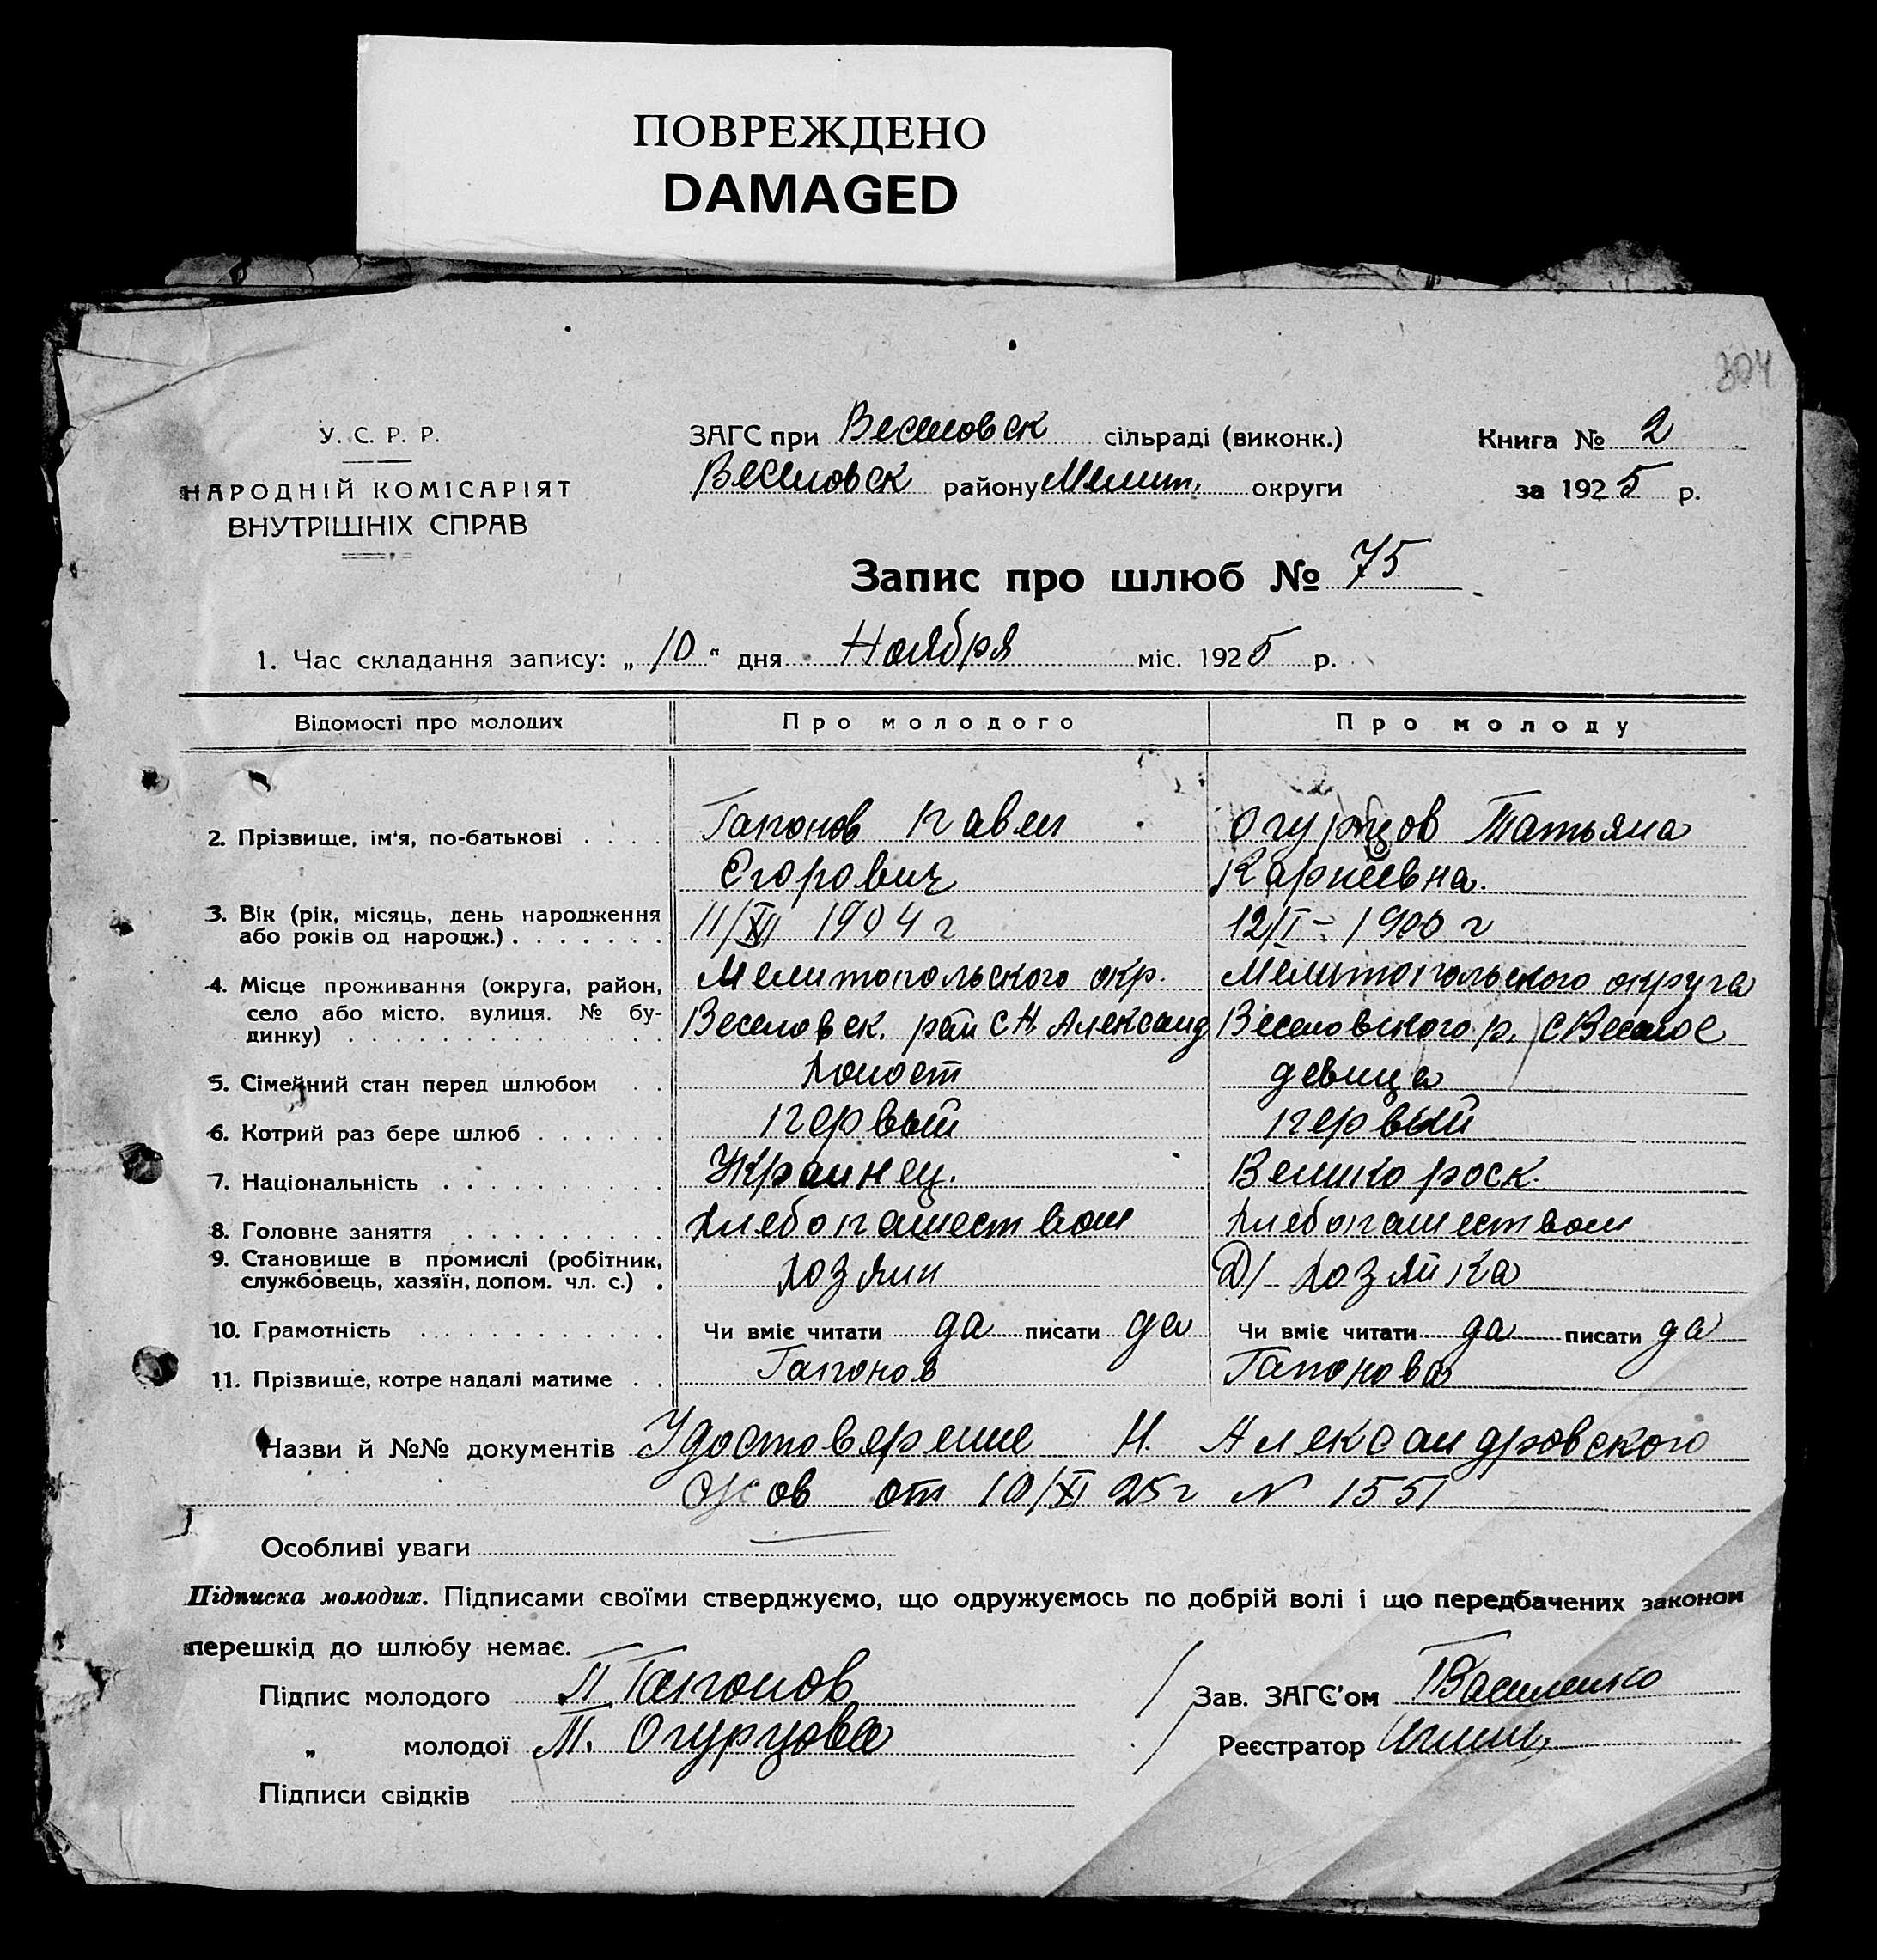 ПОВРЕЖДЕНО
DAMAGED
304
У. С. Р. Р.
НАРОДНІЙ КОМІСАРІЯТ
ВНУТРІШНІХ СПРАВ
ЗАГС при Веселовск сільраді (виконк.)
Веселовск району Мелит. округи
Книга № 2
за 1925 р.
Запис про шлюб № 75
1. Час складання запису: „10“ дня Ноября міс. 1925 р.
Відомості про молодих Про молодого Про молоду
2. Прізвище, ім'я, по-батькові . . . . Гапонов Павел Огурцов Татьяна
Егорович Карпеевна.
3. Вік (рік, місяць, день народження 11/XII 1904 г 12/I – 1906 г
або років од народж.) . . . . . . .
4. Місце проживання (округа, район, Мелитопольского окр. Мелитопольского округа
село або місто, вулиця, № бу- Веселовск. рай с Н. Александ Веселовского р. с Веселое
динку) . . . . . . . . . . . . . .
5. Сімейний стан перед шлюбом . . Холост девица
6. Котрий раз бере шлюб . . . . . . первый первый
7. Національність . . . . . . . . . . Украинец. Великороск.
8. Головне заняття . . . . . . . . . Хлебопашеством Хлебопашеством
9. Становище в промислі (робітник, Хозяин Д/ Хозяйка
службовець, хазяїн, допом. чл. с.) .
10. Грамотність . . . . . . . . . . . Чи вміє читати да писати да Чи вміє читати да писати да
11. Прізвище, котре надалі матиме . . Гапонов Гапонова
Назви й №№ документів Удостоверение Н. Александровского
от 10/XI 25 г N 1551
Особливі уваги
Підписка молодих. Підписами своїми стверджуємо, що одружуємось по добрій волі і що передбачених законом
перешкід до шлюбу немає.
Підпис молодого П Гапонов Зав. ЗАГС'ом Василенко
„ молодої Т. Огурцова Реєстратор
Підписи свідків